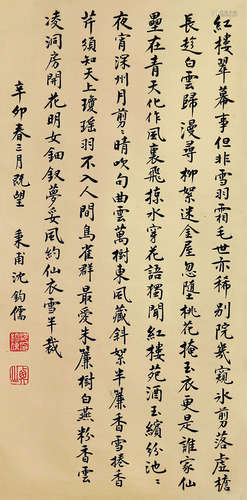 紅樓翠幕事但非雪羽霜毛世亦稀別院幾窺氷剪落虛檐
長趁白雲歸漫尋柳絮迷金屋忽墮桃花掩玉衣更是誰家仙
壘在青天化作風裏飛掠水穿花語獨聞紅樓苑酒玉繽紛池〻
夜宵深州月剪〻晴吹句曲雲萬樹東風藏斜絮半簾香雪捲香
芹須知天上瓊瑤羽不入人間鳥雀群最愛朱簾樹白燕粉香雲
凌洞房開花明女鈿釵夢妥風約仙衣雪半裁
辛卯春三月既望
秉甫沈鈞儒